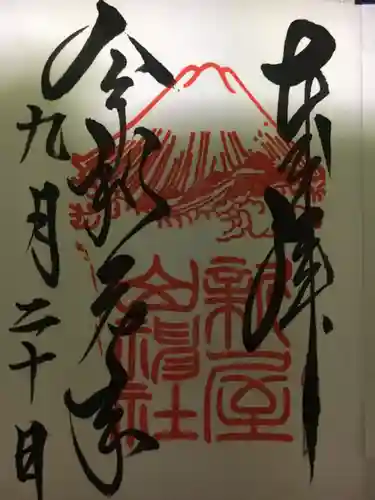 奉拝
新屋
山神社
令和元年
九月二十日